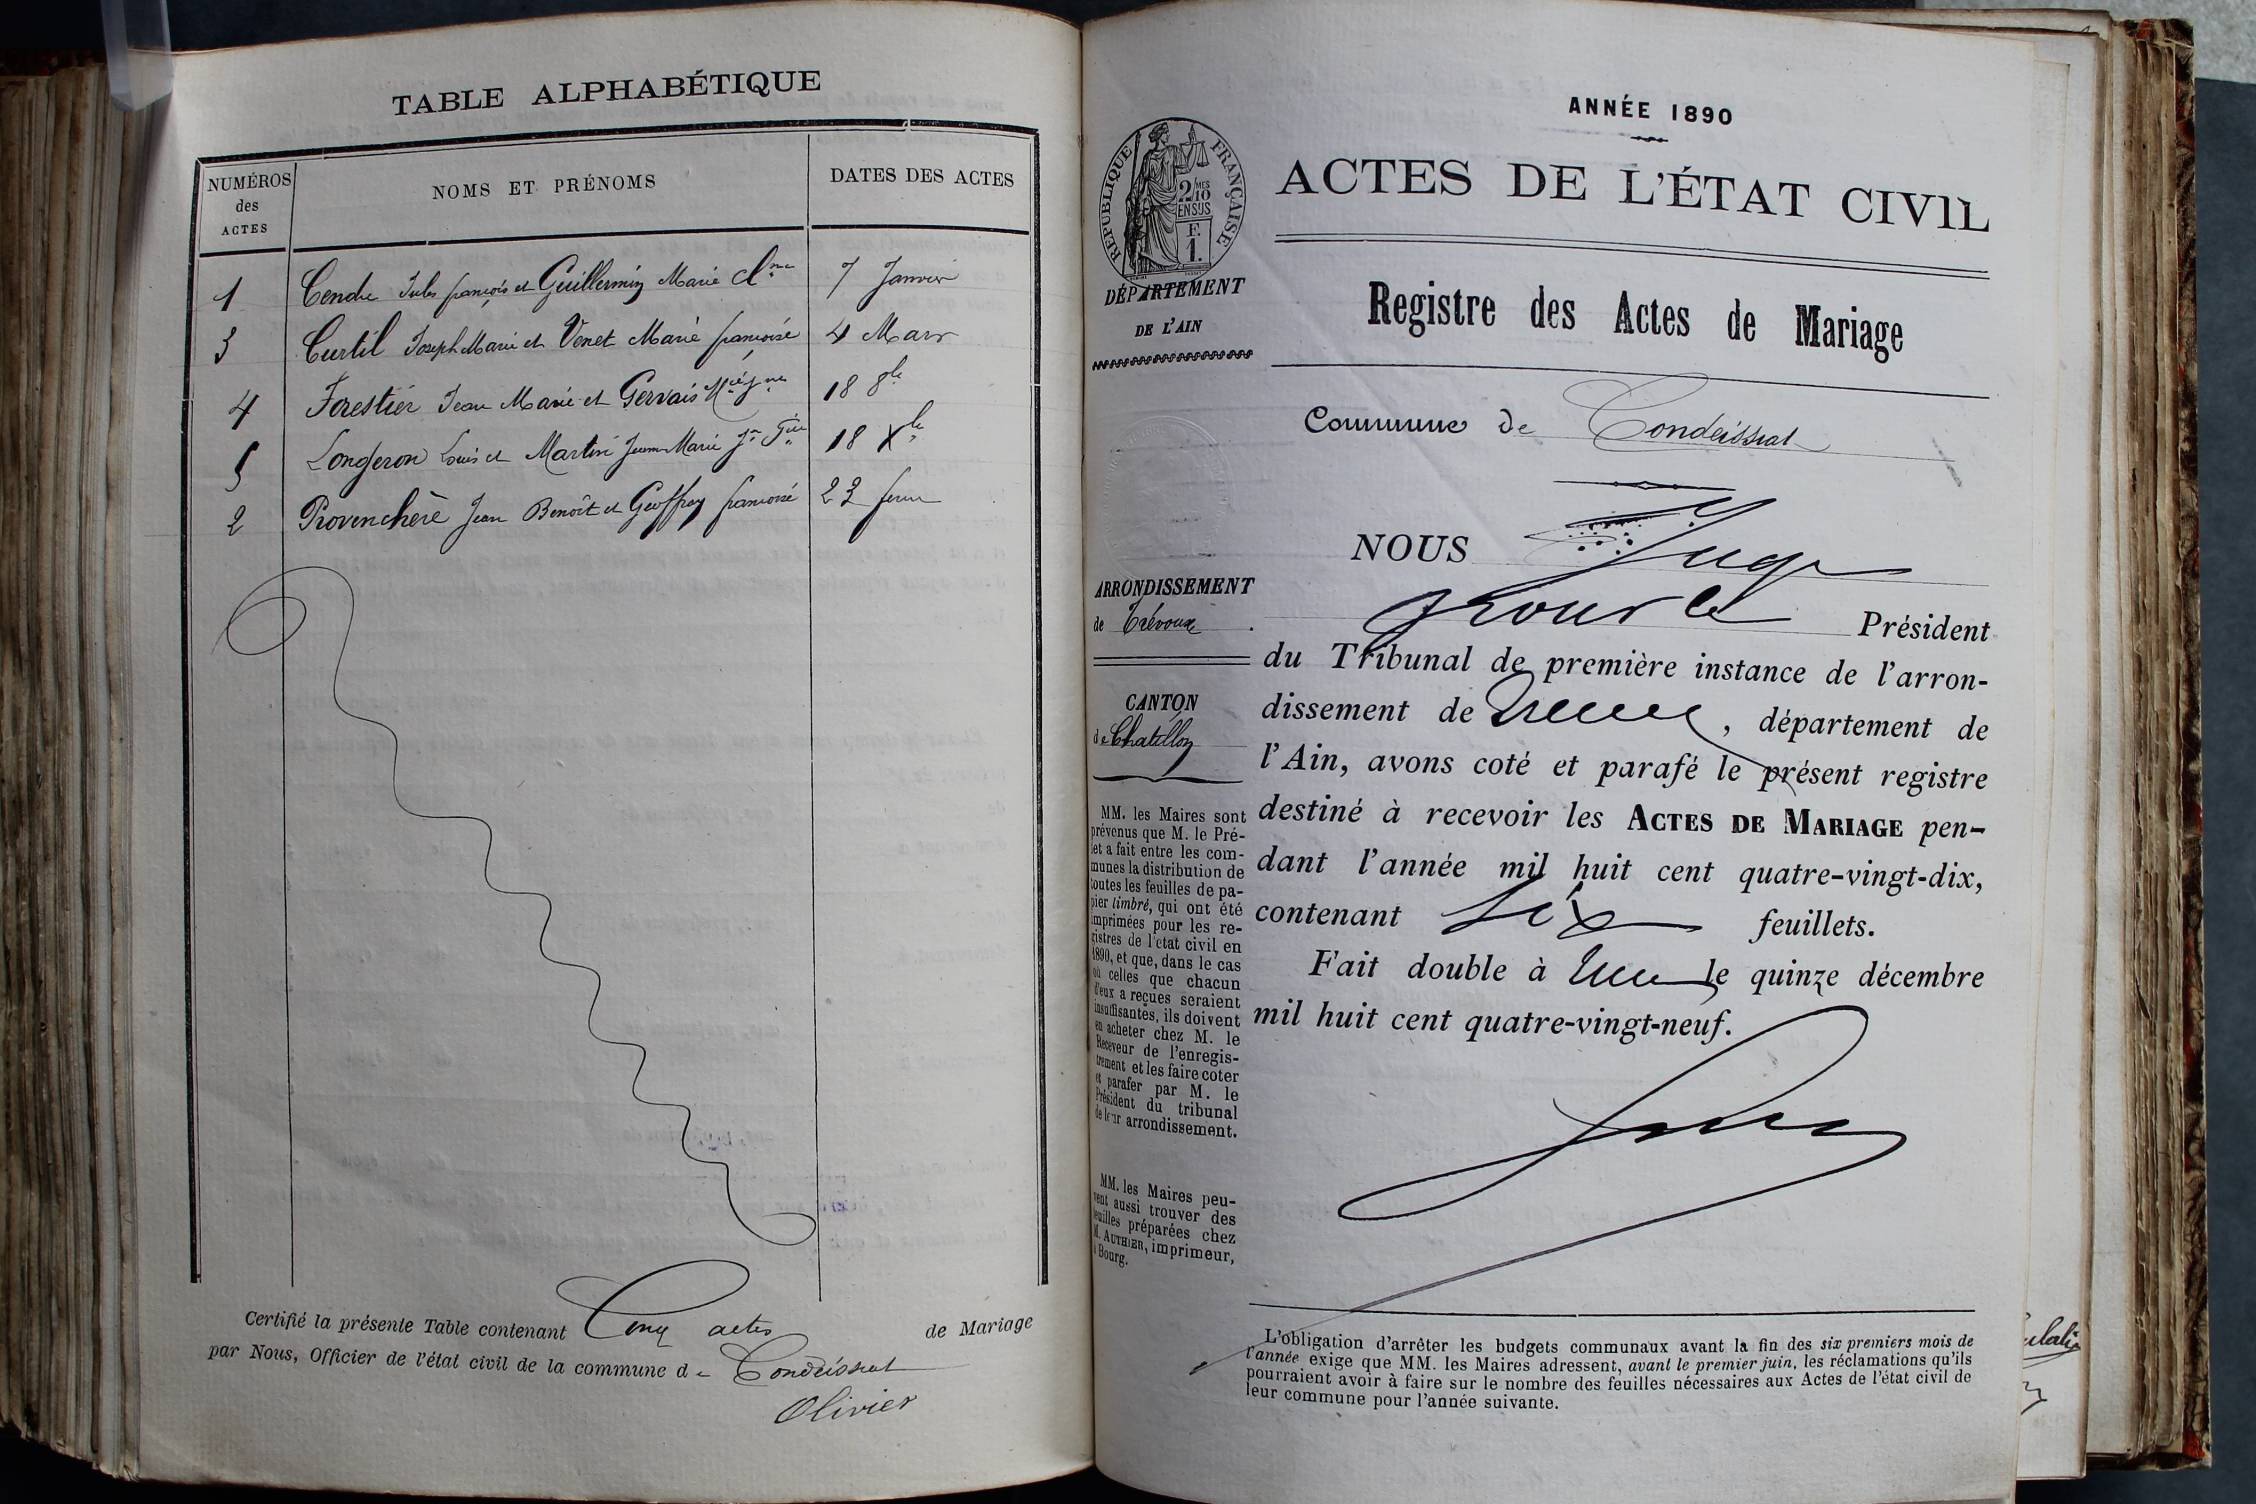 TABLE ALPHABÉTIQUE
NUMÉROS des ACTES
NOMS ET PRÉNOMS
DATES DES ACTES
1 Cendre Jules françois et Guillermin Marie Cl.ne 7 Janvier
3 Curtil Joseph Marie et Venet Marie françoise 4 Mars
4 Forestier Jean Marie et Gervais 18 8bre
5 Longeron Louis et Martin Jeanne Marie 18 Xbre
2 Provenchère Jean Benoît et Geoffray françoise 23 février
Certifié la présente Table contenant Cinq actes de Mariage
par Nous, Officier de l'état civil de la commune de Condeissiat
Olivier
ANNÉE 1890
RÉPUBLIQUE FRANÇAISE
2/10MES
EN SUS
F.
1.
ACTES DE L'ÉTAT CIVIL
DÉPARTEMENT
DE L'AIN
Registre des Actes de Mariage
Commune de Condeissiat
NOUS Juge
pour le Président
ARRONDISSEMENT
de Trévoux
du Tribunal de première instance de l'arron-
dissement de Trévoux, département de
l'Ain, avons coté et parafé le présent registre
destiné à recevoir les ACTES DE MARIAGE pen-
dant l'année mil huit cent quatre-vingt-dix,
contenant six feuillets.
Fait double à le quinze décembre
mil huit cent quatre-vingt-neuf.
CANTON
de Chatillon
MM. les Maires sont
prévenus que M. le Pré-
fet a fait entre les com-
munes la distribution de
toutes les feuilles de pa-
pier timbré, qui ont été
imprimées pour les re-
gistres de l'état civil en
1890, et que, dans le cas
où celles que chacun
d'eux a reçues seraient
insuffisantes, ils doivent
en acheter chez M. le
Receveur de l'enregis-
trement et les faire coter
et parafer par M. le
Président du tribunal
de leur arrondissement.
MM. les Maires peu-
vent aussi trouver des
feuilles préparées chez
M. AUTHIER, imprimeur,
à Bourg.
L'obligation d'arrêter les budgets communaux avant la fin des six premiers mois de
l'année exige que MM. les Maires adressent, avant le premier juin, les réclamations qu'ils
pourraient avoir à faire sur le nombre des feuilles nécessaires aux Actes de l'état civil de
leur commune pour l'année suivante.